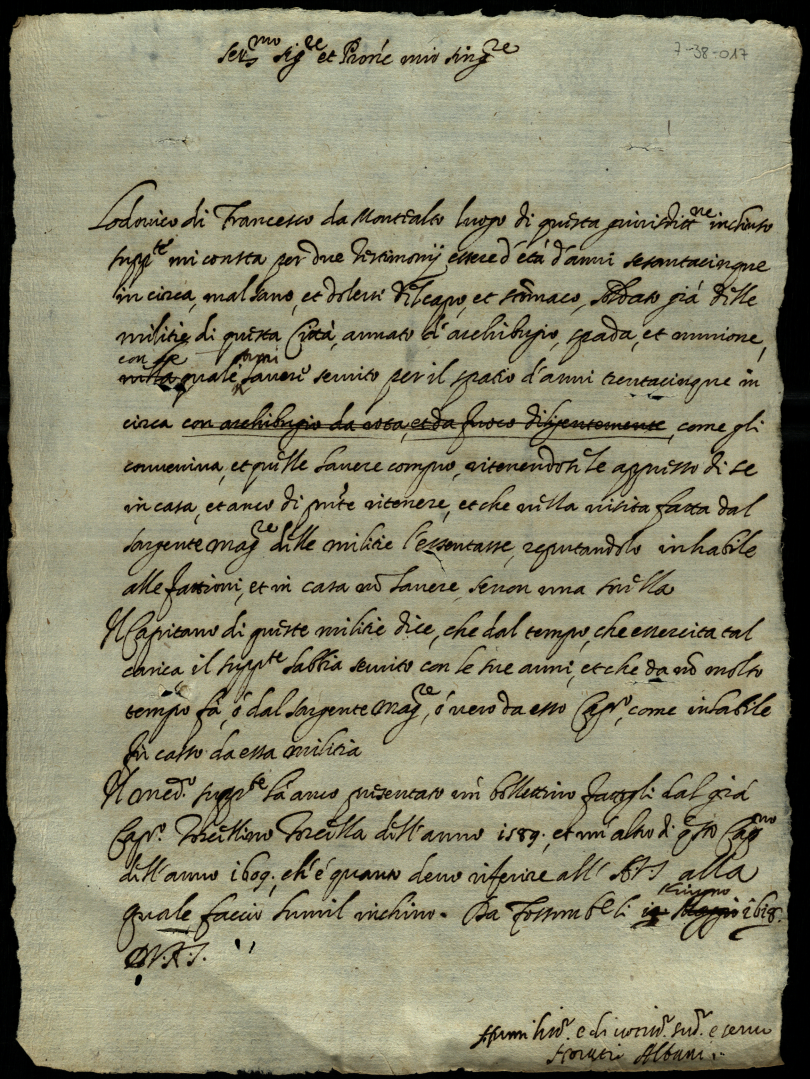 7-38-017
Ser.mo Sig.re et Pron'e mio Sing.re
Lodovico di Francesco da Montealto luogo di questa giurisdit.ne inchiuso
supp.te mi consta per due testimonij essere d'età d'anni sesantacinque
in circa, mal sano, et dolersi del capo, et stomaco, soldato già delle
militie di questa Città, armato di archibugio, spada, et murione,
con le quali armi havere servito per il spatio d'anni trentacinque in
circa con archibugio da rota, et da fuoco diligentemente, come gli
conveniva, et quelle havere compro, ritenendosele appresso di se
in casa, et anco di pn'te ritenere, et che nella visita fatta dal
sargente mag.re delle militie l'essentasse, reputandolo inhabile
alle fattioni, et in casa nō havere, se non una sorella
Il Capitano di queste militie dice, che dal tempo, che essercita tal
carica il supp.te habbia servito con le sue armi, et che da nō molto
tempo fà, ò dal sargente mag.re, ò vero da esso Cap.o, come inhabile
fù casso da essa militia
Il med.o supp.te hà anco presentato un bollettino fattogli dal già
Cap.o Torellino Torella dell'anno 1589. et un'altro di q'sto Cap.no
dell'anno 1609. ch'è quanto devo riferire all' A.V.S. alla
quale faccio humil inchino. Da Fossomb.e li Giugno 1618.
D.V.A.S.
Humiliss.o e divotiss.o sud.o e servo
Horatio Albani